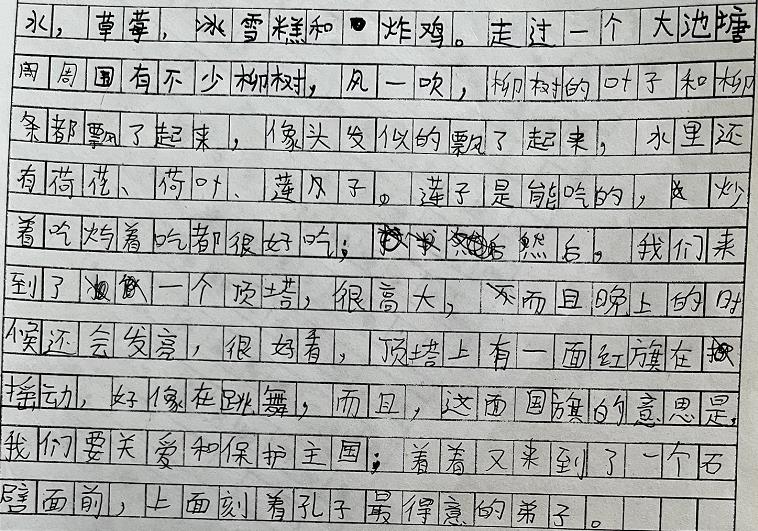 水，草莓，冰雪糕和炸鸡。走过一个大池塘
周周围有不少柳树，风一吹，柳树的叶子和柳
条都飘了起来，像头发似的飘了起来，水里还
有荷花、荷叶、莲子。莲子是能吃的，炒
着吃炖着吃都很好吃；然后，我们来
到了一个顶塔，很高大，而且晚上的时
候还会发亮，很好看，顶塔上有一面红旗在
摇动，好像在跳舞，而且，这面国旗的意思是，
我们要关爱和保护主国；着着又来到了一个石
壁面前，上面刻着孔子最得意的弟子。